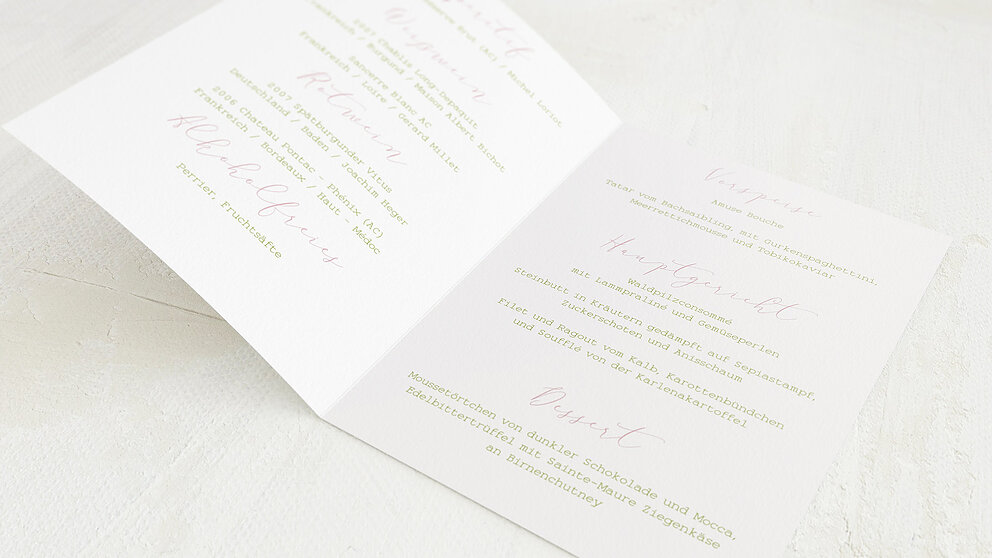 Weisswein
2007 Chablis Long-Depaquit
Frankreich / Burgund / Maison Albert Bichot
Sancerre Blanc AC
Frankreich / Loire / Gerard Millet
Rotwein
2007 Spätburgunder Vitus
Deutschland / Baden / Joachim Heger
2006 Chateau Pontac - Phénix (AC)
Frankreich / Bordeaux / Haut - Médoc
Alkoholfreies
Perrier, Fruchtsäfte
Vorspeise
Amuse Bouche
Tatar vom Bachsaibling, mit Gurkenspaghettini,
Meerrettichmousse und Tobikokaviar
Hauptgericht
Waldpilzconsommé
mit Lammpraliné und Gemüseperlen
Steinbutt in Kräutern gedämpft auf Sepiastampf,
Zuckerschoten und Anisschaum
Filet und Ragout vom Kalb, Karottenbündchen
und Soufflé von der Karlenakartoffel
Dessert
Moussetörtchen von dunkler Schokolade und Mocca,
Edelbittertrüffel mit Sainte-Maure Ziegenkäse
an Birnenchutney